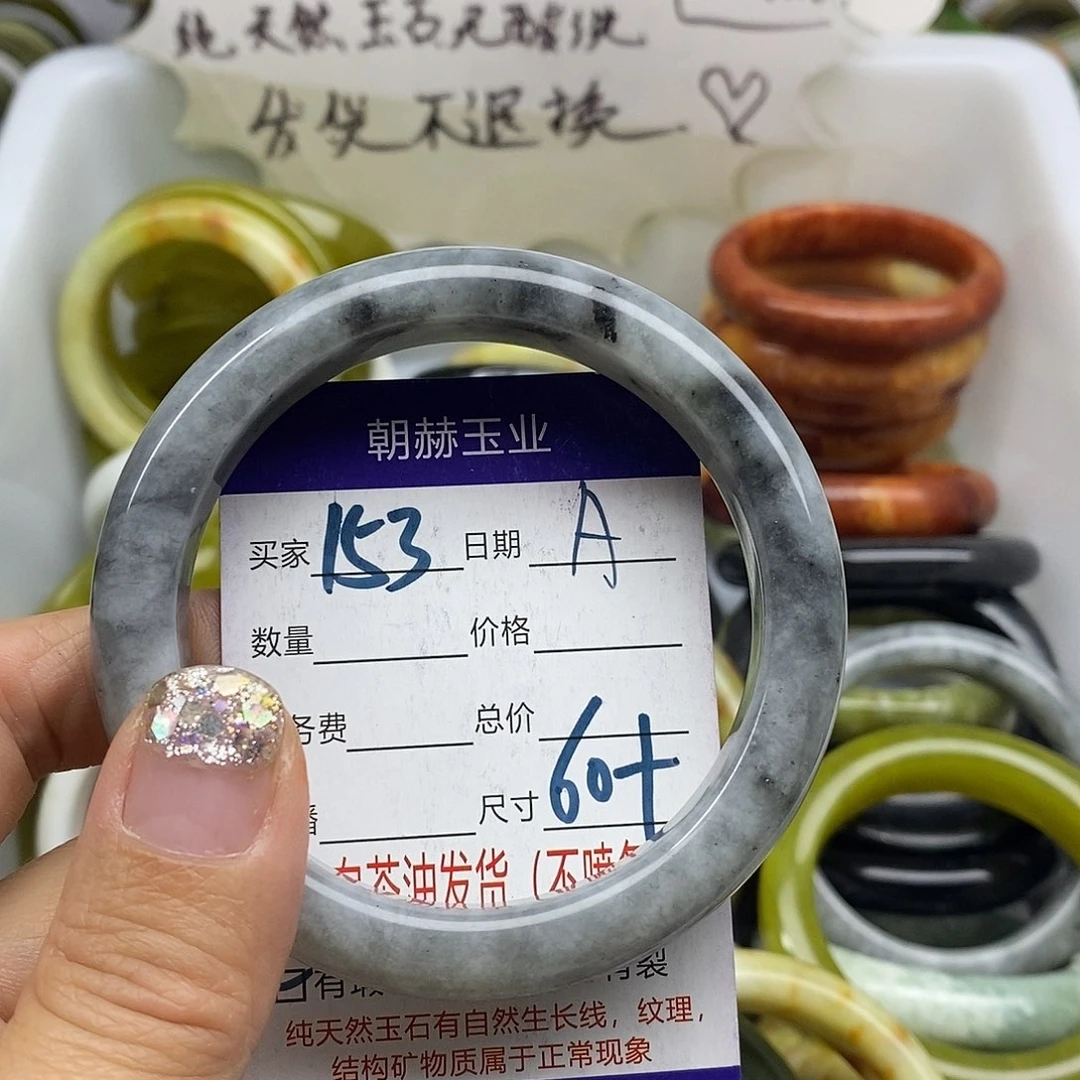 纯天然玉石无酸洗
售出不退换
朝赫玉业
买家 153 日期 A
数量 价格
务费 总价
播 尺寸 60+
白茶油发货(不喷
有瑕 有裂
纯天然玉石有自然生长线,纹理,
结构矿物质属于正常现象